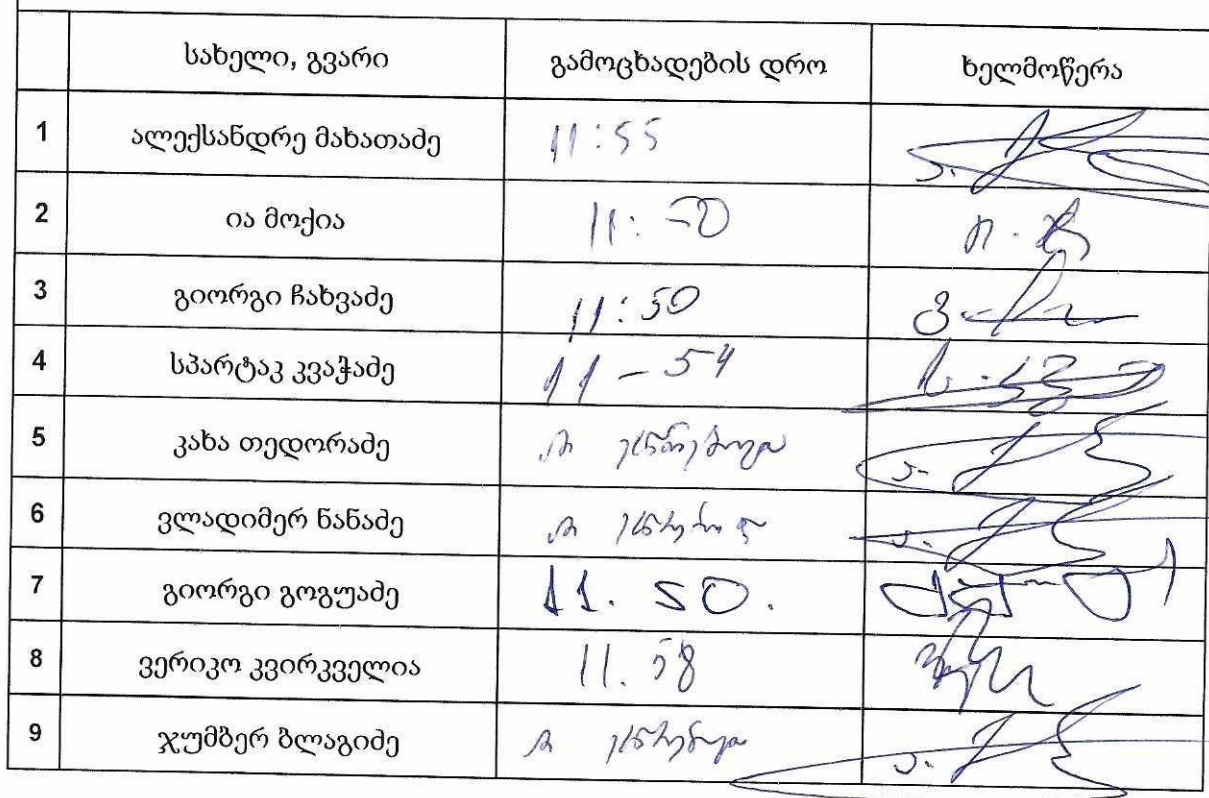 სახელი, გვარი გამოცხადების დრო ხელმოწერა
1 ალექსანდრე მახათაძე 11:55
2 ია მოქია 11:50
3 გიორგი ჩახვაძე 11:50
4 სპარტაკ კვაჭაძე 11-54
5 კახა თედორაძე არ
6 ვლადიმერ ნანაძე არ
7 გიორგი გოგუაძე 11.50.
8 ვერიკო კვირკველია 11.58
9 ჯუმბერ ბლაგიძე არ